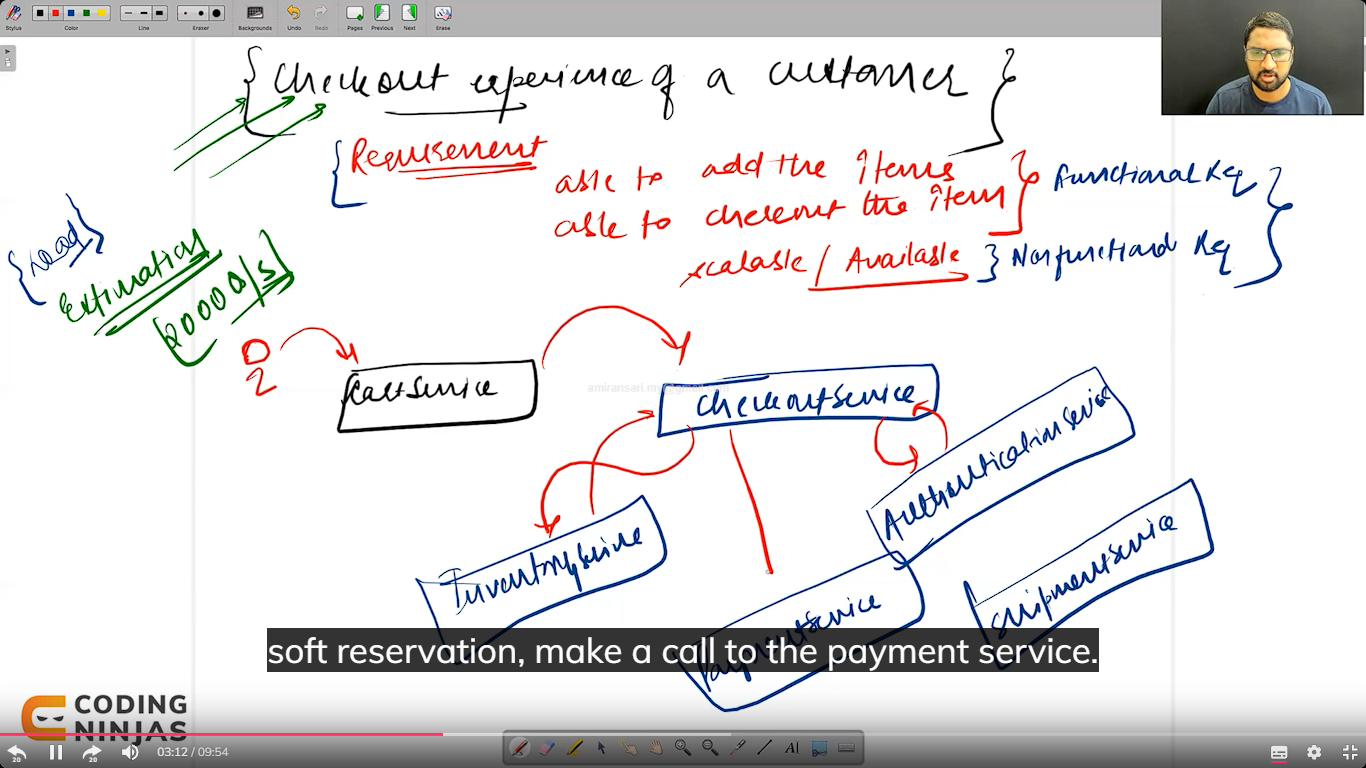 Stylus
Color
Line
Eraser
Backgrounds
Undo
Redo
Pages
Previous
Next
Erase
{ checkout experience of a customer }
{ Requirement
able to add the items
able to checkout the item
} Functional Req }
scalable / Available } Nonfunctional Req
Estimation
CartService
CheckoutService
InventoryService
PaymentService
ShipmentService
soft reservation, make a call to the payment service.
CODING
NINJAS
20
20
03:12 / 09:54